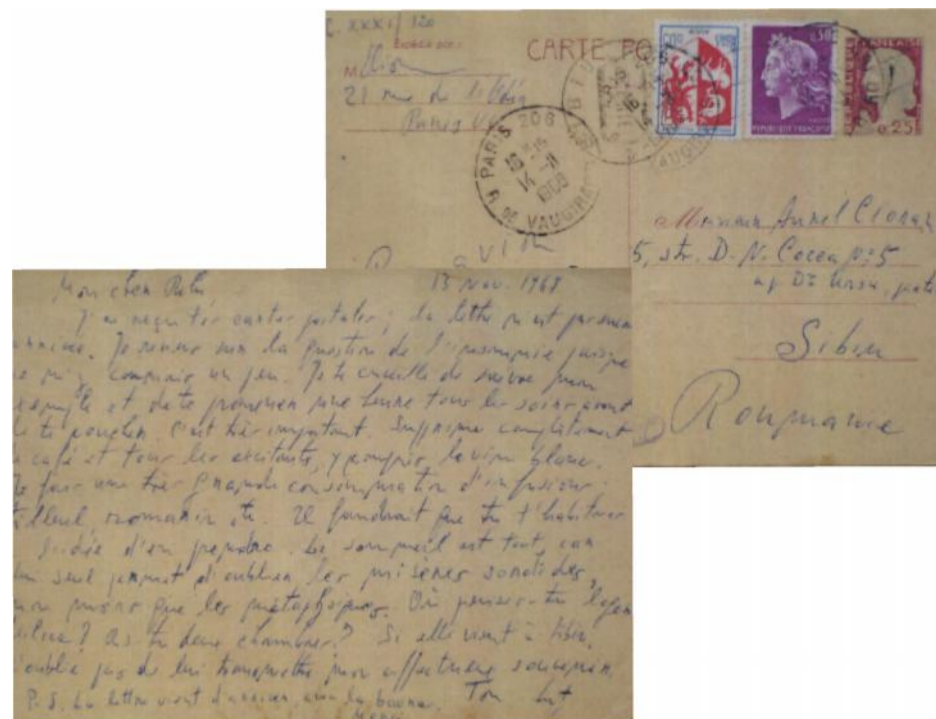 C. XXXI/120
CARTE PO
M Cioran
21 rue de l'Odéon
Paris VI
PARIS 206
14-11
1968
R. DE VAUGIRA
0,50
REPUBLIQUE FRANÇAISE
0,25
Monsieur Aurel Cioran
5, str. D. N. Cocea Nº 5
Sibiu
Roumanie
avion
Mon cher Relu
13 Nov. 1968
J'ai reçu tes cartes postales; la lettre n'est pas encore
arrivée. Je reviens sur la question de l'insomnie puisque
je m'y connais un peu. Je te conseille de suivre mon
exemple et de te promener une heure tous les soirs avant
de te coucher. C'est très important. Supprime complètement
le café et tous les excitants, y compris le vin blanc.
Je fais une très grande consommation d'infusions:
tilleul, romarin, etc. Il faudrait que tu t'habitues
à l'idée d'en prendre. Le sommeil est tout, car
lui seul permet d'oublier les misères sordides,
non moins que les métaphysiques. Où penses-tu loger
? As-tu deux chambres? Si elle vient à Sibiu,
n'oublie pas de lui transmettre mon affectueux souvenir.
P.S. La lettre vient d'arriver, avec la bonne. Ton
Merci